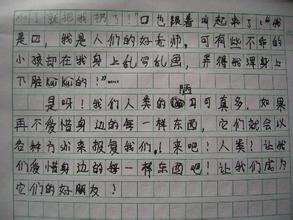 就把我扔了！"口也跟着说起来了："我
是口，我是人们的好老师，可有些不乖的
小孩却在我上乱写乱画，弄得我浑身上
下脏kai kai的！"
陋
是呀！我们人类的习可真多，如果
再不爱惜身边的每一样东西，它们就会以
各种方式来报复我们，来吧！人类！让我
们爱惜身边的每一样东西吧！让我们成为
它们的好朋友！